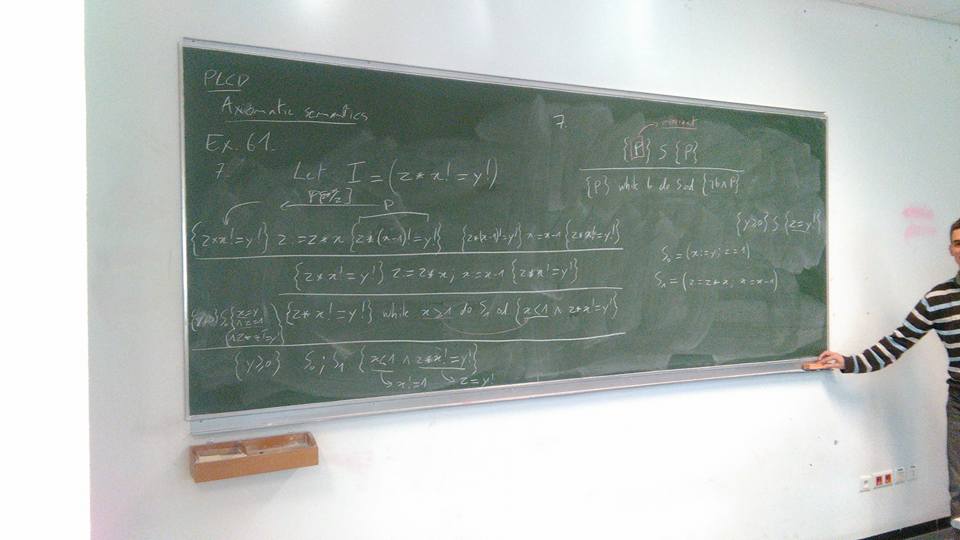 PLCD
Axiomatic semantics
Ex. 61.
7. Let I = (z * x! = y!)
P
{z*x! = y!} z := z*x {z*(x-1)! = y!} {z*(x-1)! = y!} x = x-1 {z*x! = y!}
{z*x! = y!} z = z*x; x = x-1 {z*x! = y!}
{z*x! = y!} while x>1 do S₁ od {x≤1 ∧ z*x! = y!}
{y≥0} S₀; S₁ {x≤1 ∧ z*x! = y!}
↳ x! = 1 ↳ z = y!
7.
{P} S {P}
{P} while b do S od {¬b ∧ P}
{y≥0} S {z = y!}
S₀ = (x := y; z = 1)
S₁ = (z = z*x; x = x-1)